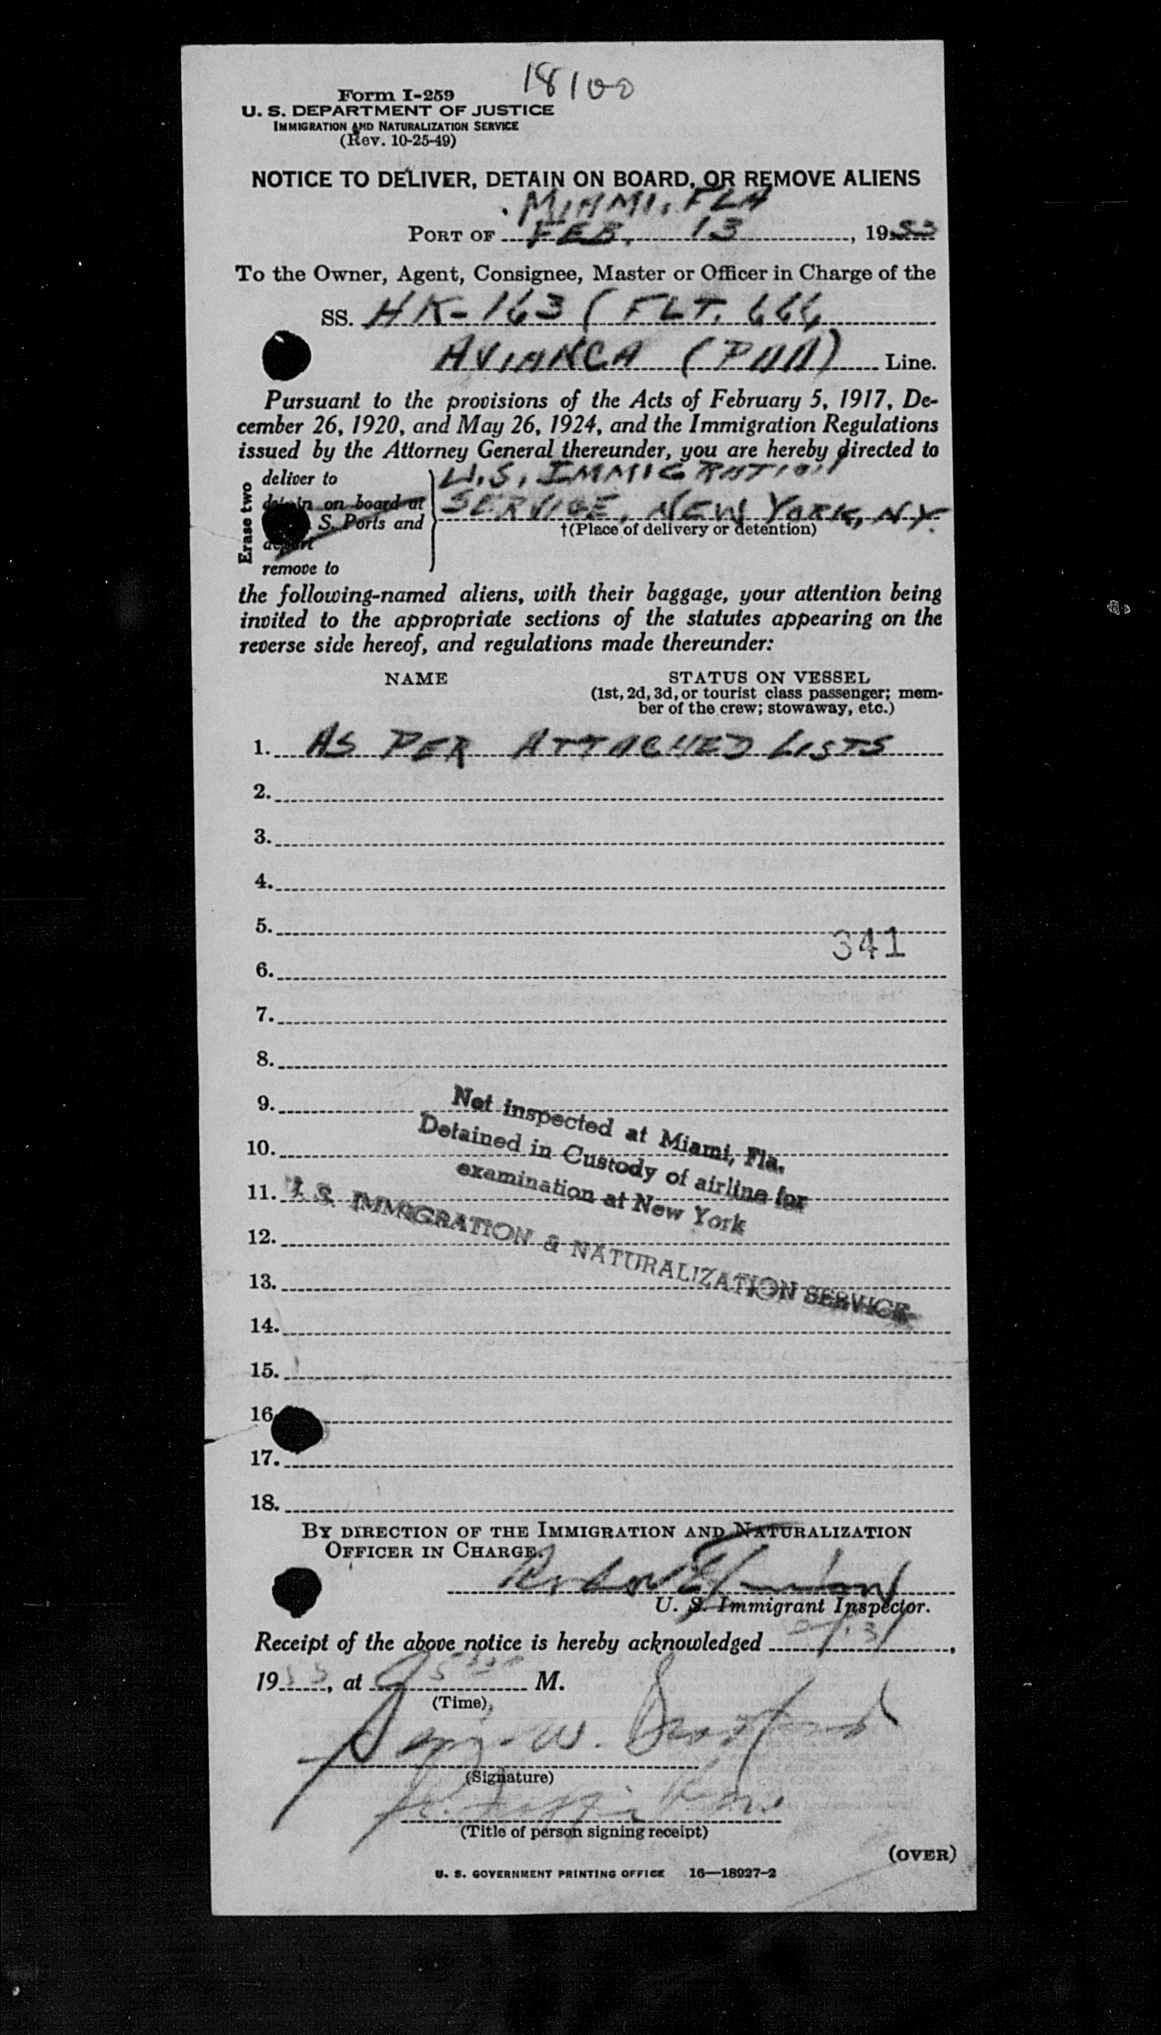 18100
Form I-259
U. S. DEPARTMENT OF JUSTICE
IMMIGRATION AND NATURALIZATION SERVICE
(Rev. 10-25-49)
NOTICE TO DELIVER, DETAIN ON BOARD, OR REMOVE ALIENS
MIAMI, FLA
PORT OF FEB. 13, 1953
To the Owner, Agent, Consignee, Master or Officer in Charge of the
SS. HK-163 (FLT. 666
AVIANCA (PAA) Line.
Pursuant to the provisions of the Acts of February 5, 1917, De-
cember 26, 1920, and May 26, 1924, and the Immigration Regulations
issued by the Attorney General thereunder, you are hereby directed to
Erase two
deliver to U.S. IMMIGRATION
detain on board at SERVICE, NEW YORK, NY.
S. Ports and
†(Place of delivery or detention)
depart
remove to
the following-named aliens, with their baggage, your attention being
invited to the appropriate sections of the statutes appearing on the
reverse side hereof, and regulations made thereunder:
NAME STATUS ON VESSEL
(1st, 2d, 3d, or tourist class passenger; mem-
ber of the crew; stowaway, etc.)
1. AS PER ATTACHED LISTS
2.
3.
4.
5.
341
6.
7.
8.
9.
Not inspected at Miami, Fla.
10.
Detained in Custody of airline for
11.
examination at New York
12.
U. S. IMMIGRATION & NATURALIZATION SERVICE
13.
14.
15.
16
17.
18.
BY DIRECTION OF THE IMMIGRATION AND NATURALIZATION
OFFICER IN CHARGE.
U. S. Immigrant Inspector.
Receipt of the above notice is hereby acknowledged
1953, at M.
(Time)
W.
(Signature)
(Title of person signing receipt)
(OVER)
U. S. GOVERNMENT PRINTING OFFICE 16—18927-2